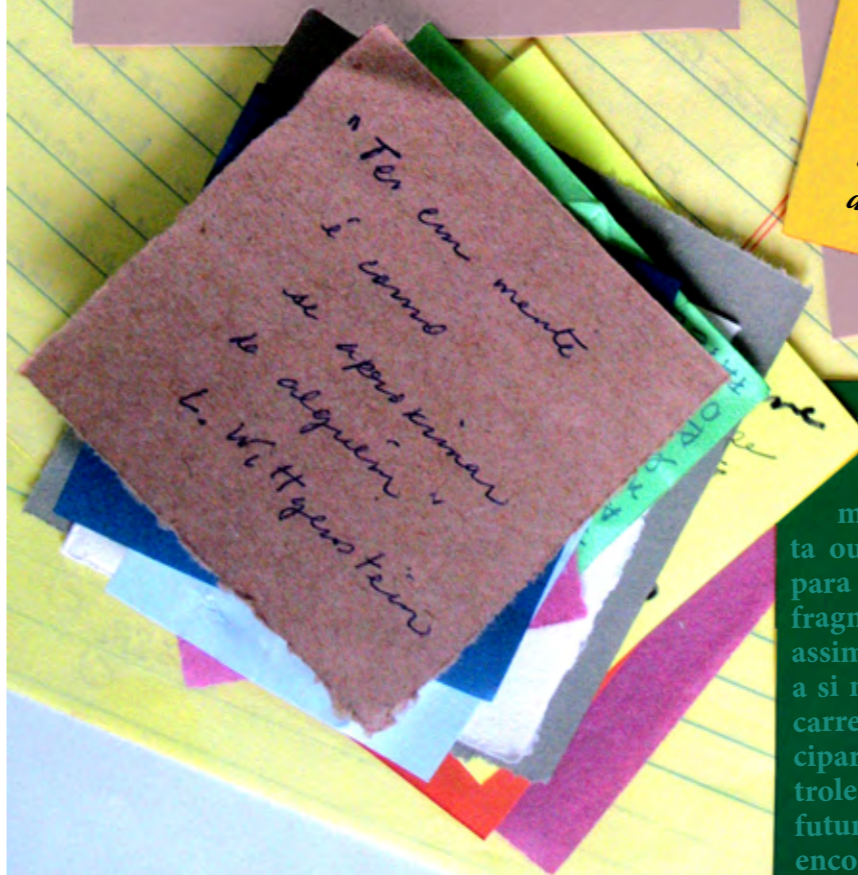 "Ter em mente
é como
se aproximar
de alguém"
L. Wittgenstein
m
ta ou
para
frag
assim
a si
carre
cipar
trole
futur
enco